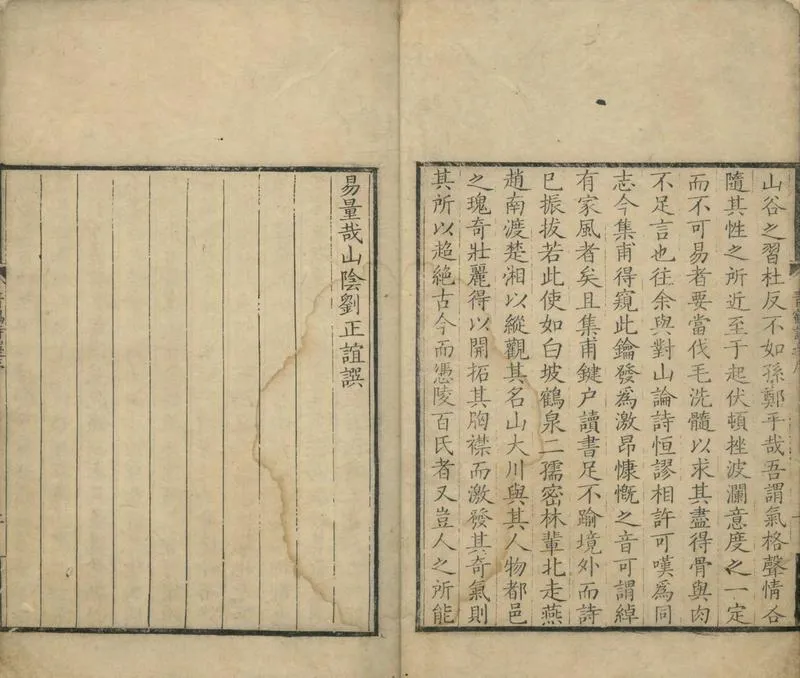 山谷之習杜反不如孫鄭乎哉吾謂氣格聲情各
隨其性之所近至于起伏頓挫波瀾意度之一定
而不可易者要當伐毛洗髓以求其盡得骨與肉
不足言也往余與對山論詩恒謬相許可嘆為同
志今集甫得窺此鑰發為激昂慷慨之音可謂綽
有家風者矣且集甫鍵户讀書足不踰境外而詩
已振拔若此使如白坡鶴泉二孺密林輩北走燕
趙南渡楚湘以縱觀其名山大川與其人物都邑
之瑰奇壯麗得以開拓其胸襟而激發其奇氣則
其所以超絶古今而憑陵百氏者又豈人之所能
易量哉山陰劉正誼譔